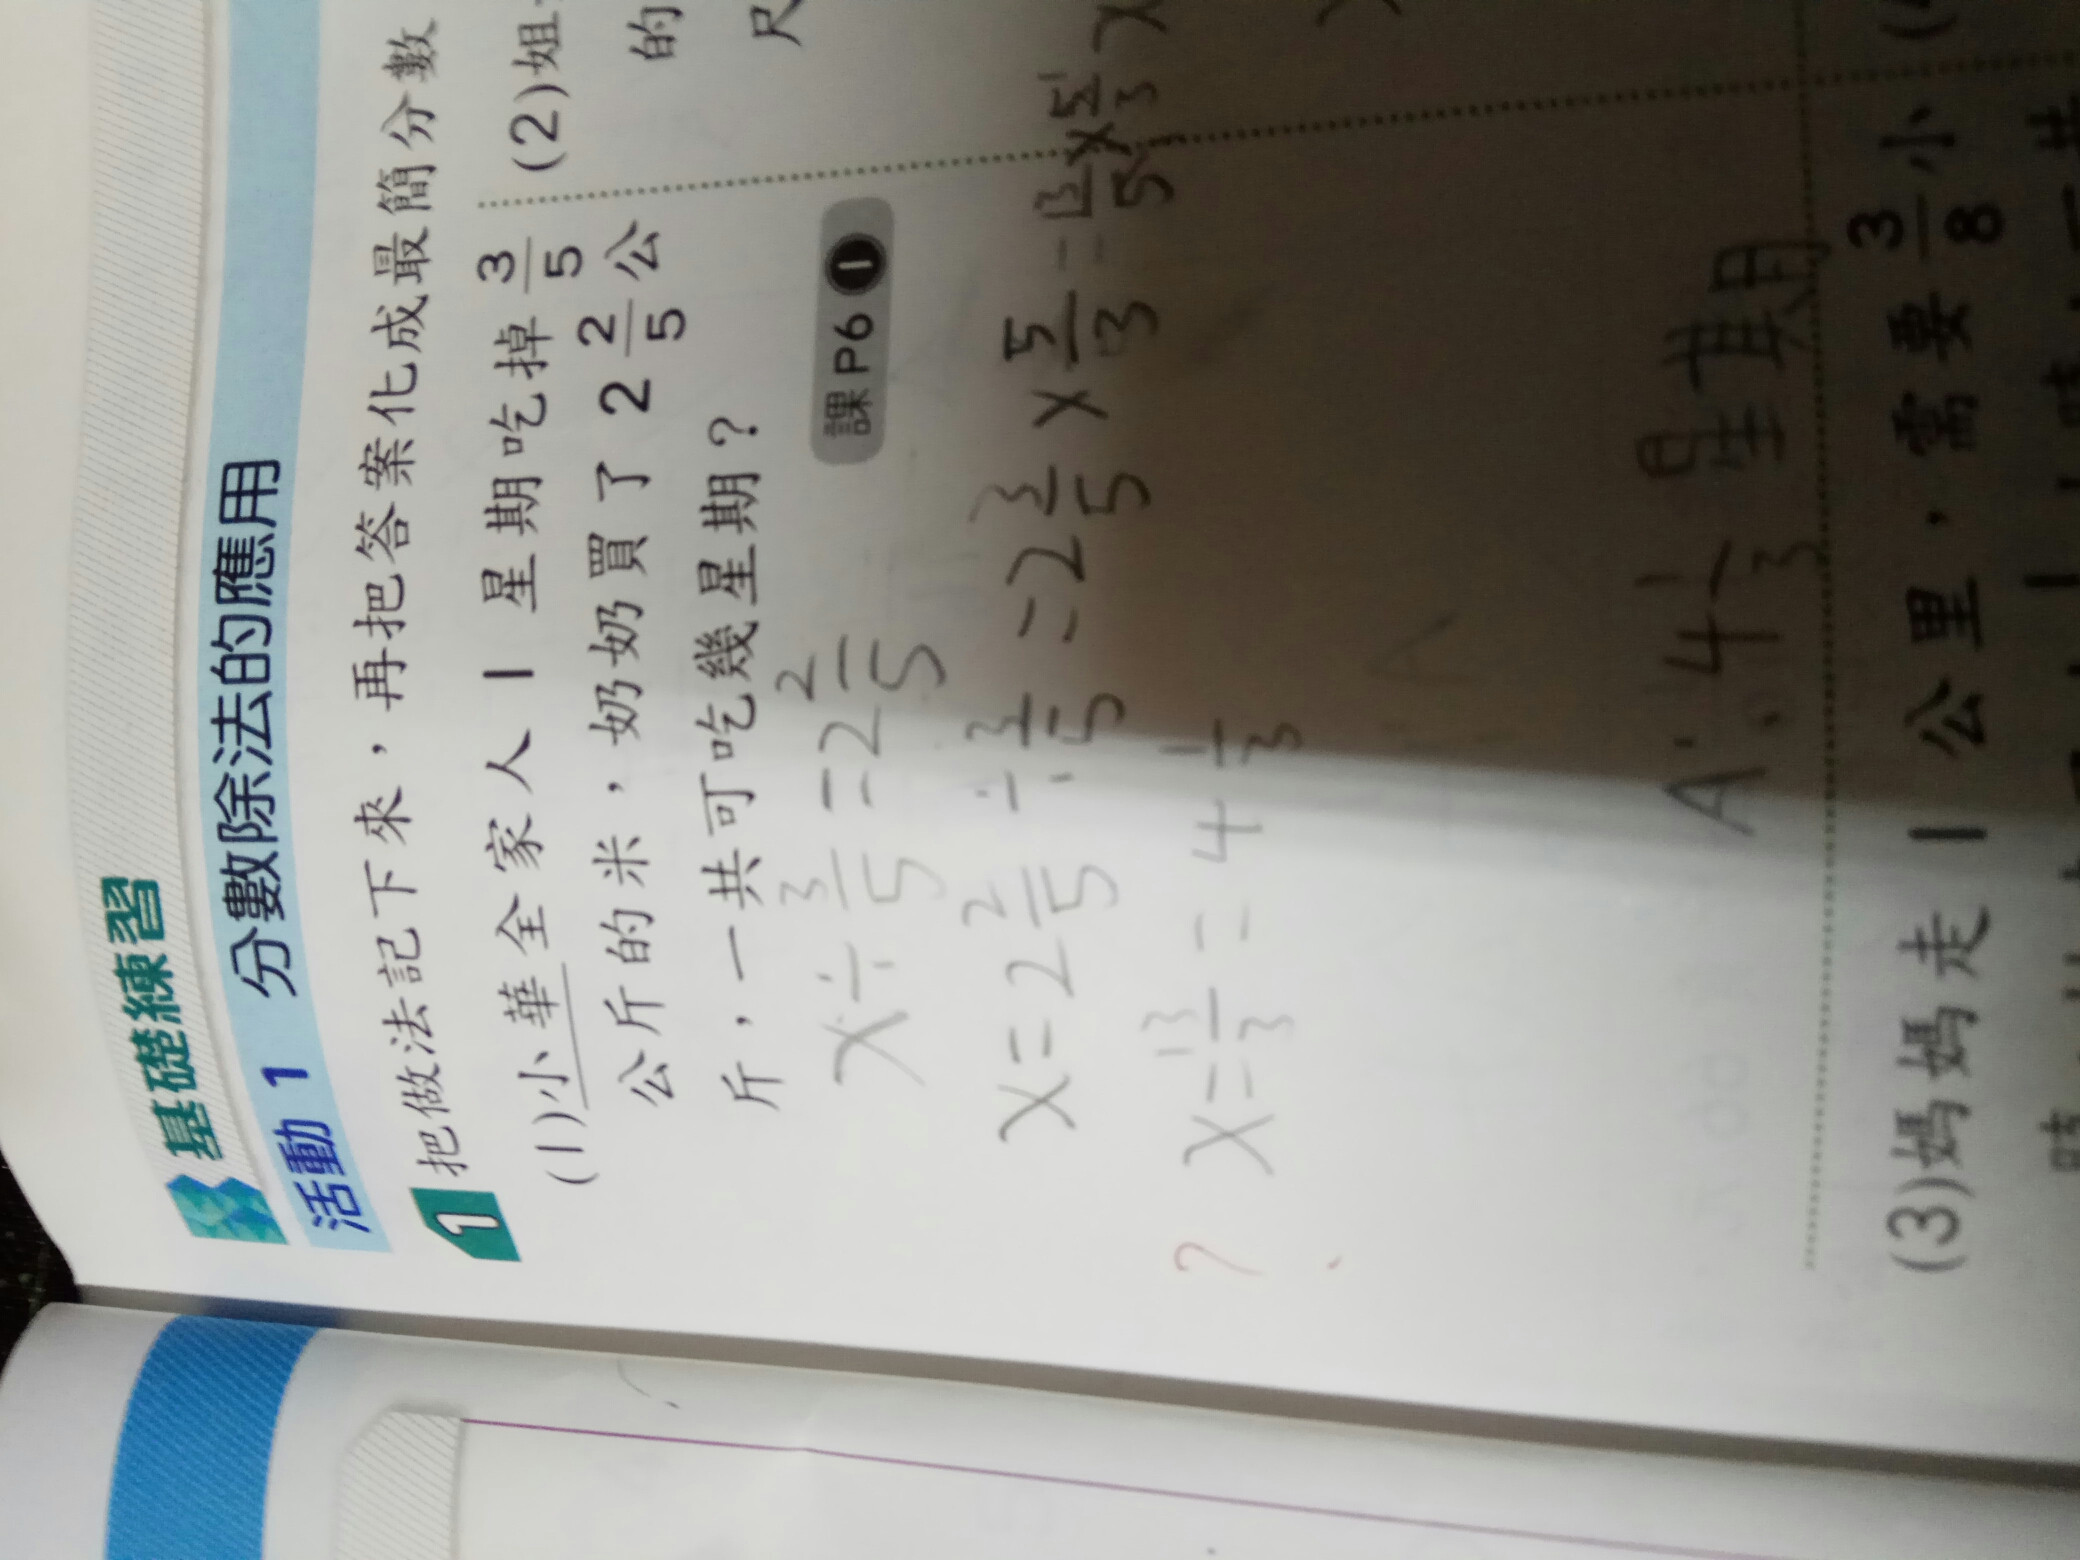 基礎練習
活動 1 分數除法的應用
1 把做法記下來，再把答案化成最簡分數
(1)小華全家人 1 星期吃掉 3/5
公斤的米，奶奶買了 2 2/5 公
斤，一共可吃幾星期？
課P6 1
x÷3/5=2 2/5
x=2 2/5÷3/5=2 3/5×5/3=13/5×5/3
x=13/3=4 1/3
A:4 1/3星期
(2)姐
的
尺
(3)媽媽走 1 公里，需要 3/8 小